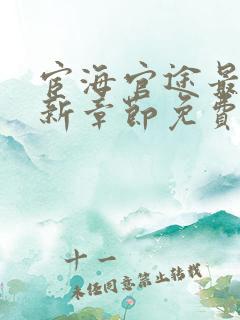 宦海官途最
新章節免費
十一
未经同意禁止转载